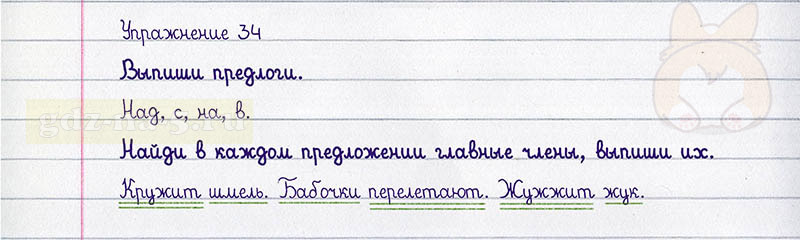 Упражнение 34
Выпиши предлоги.
Над, с, на, в.
Найди в каждом предложении главные члены, выпиши их.
Кружит шмель. Бабочки перелетают. Жужжит жук.